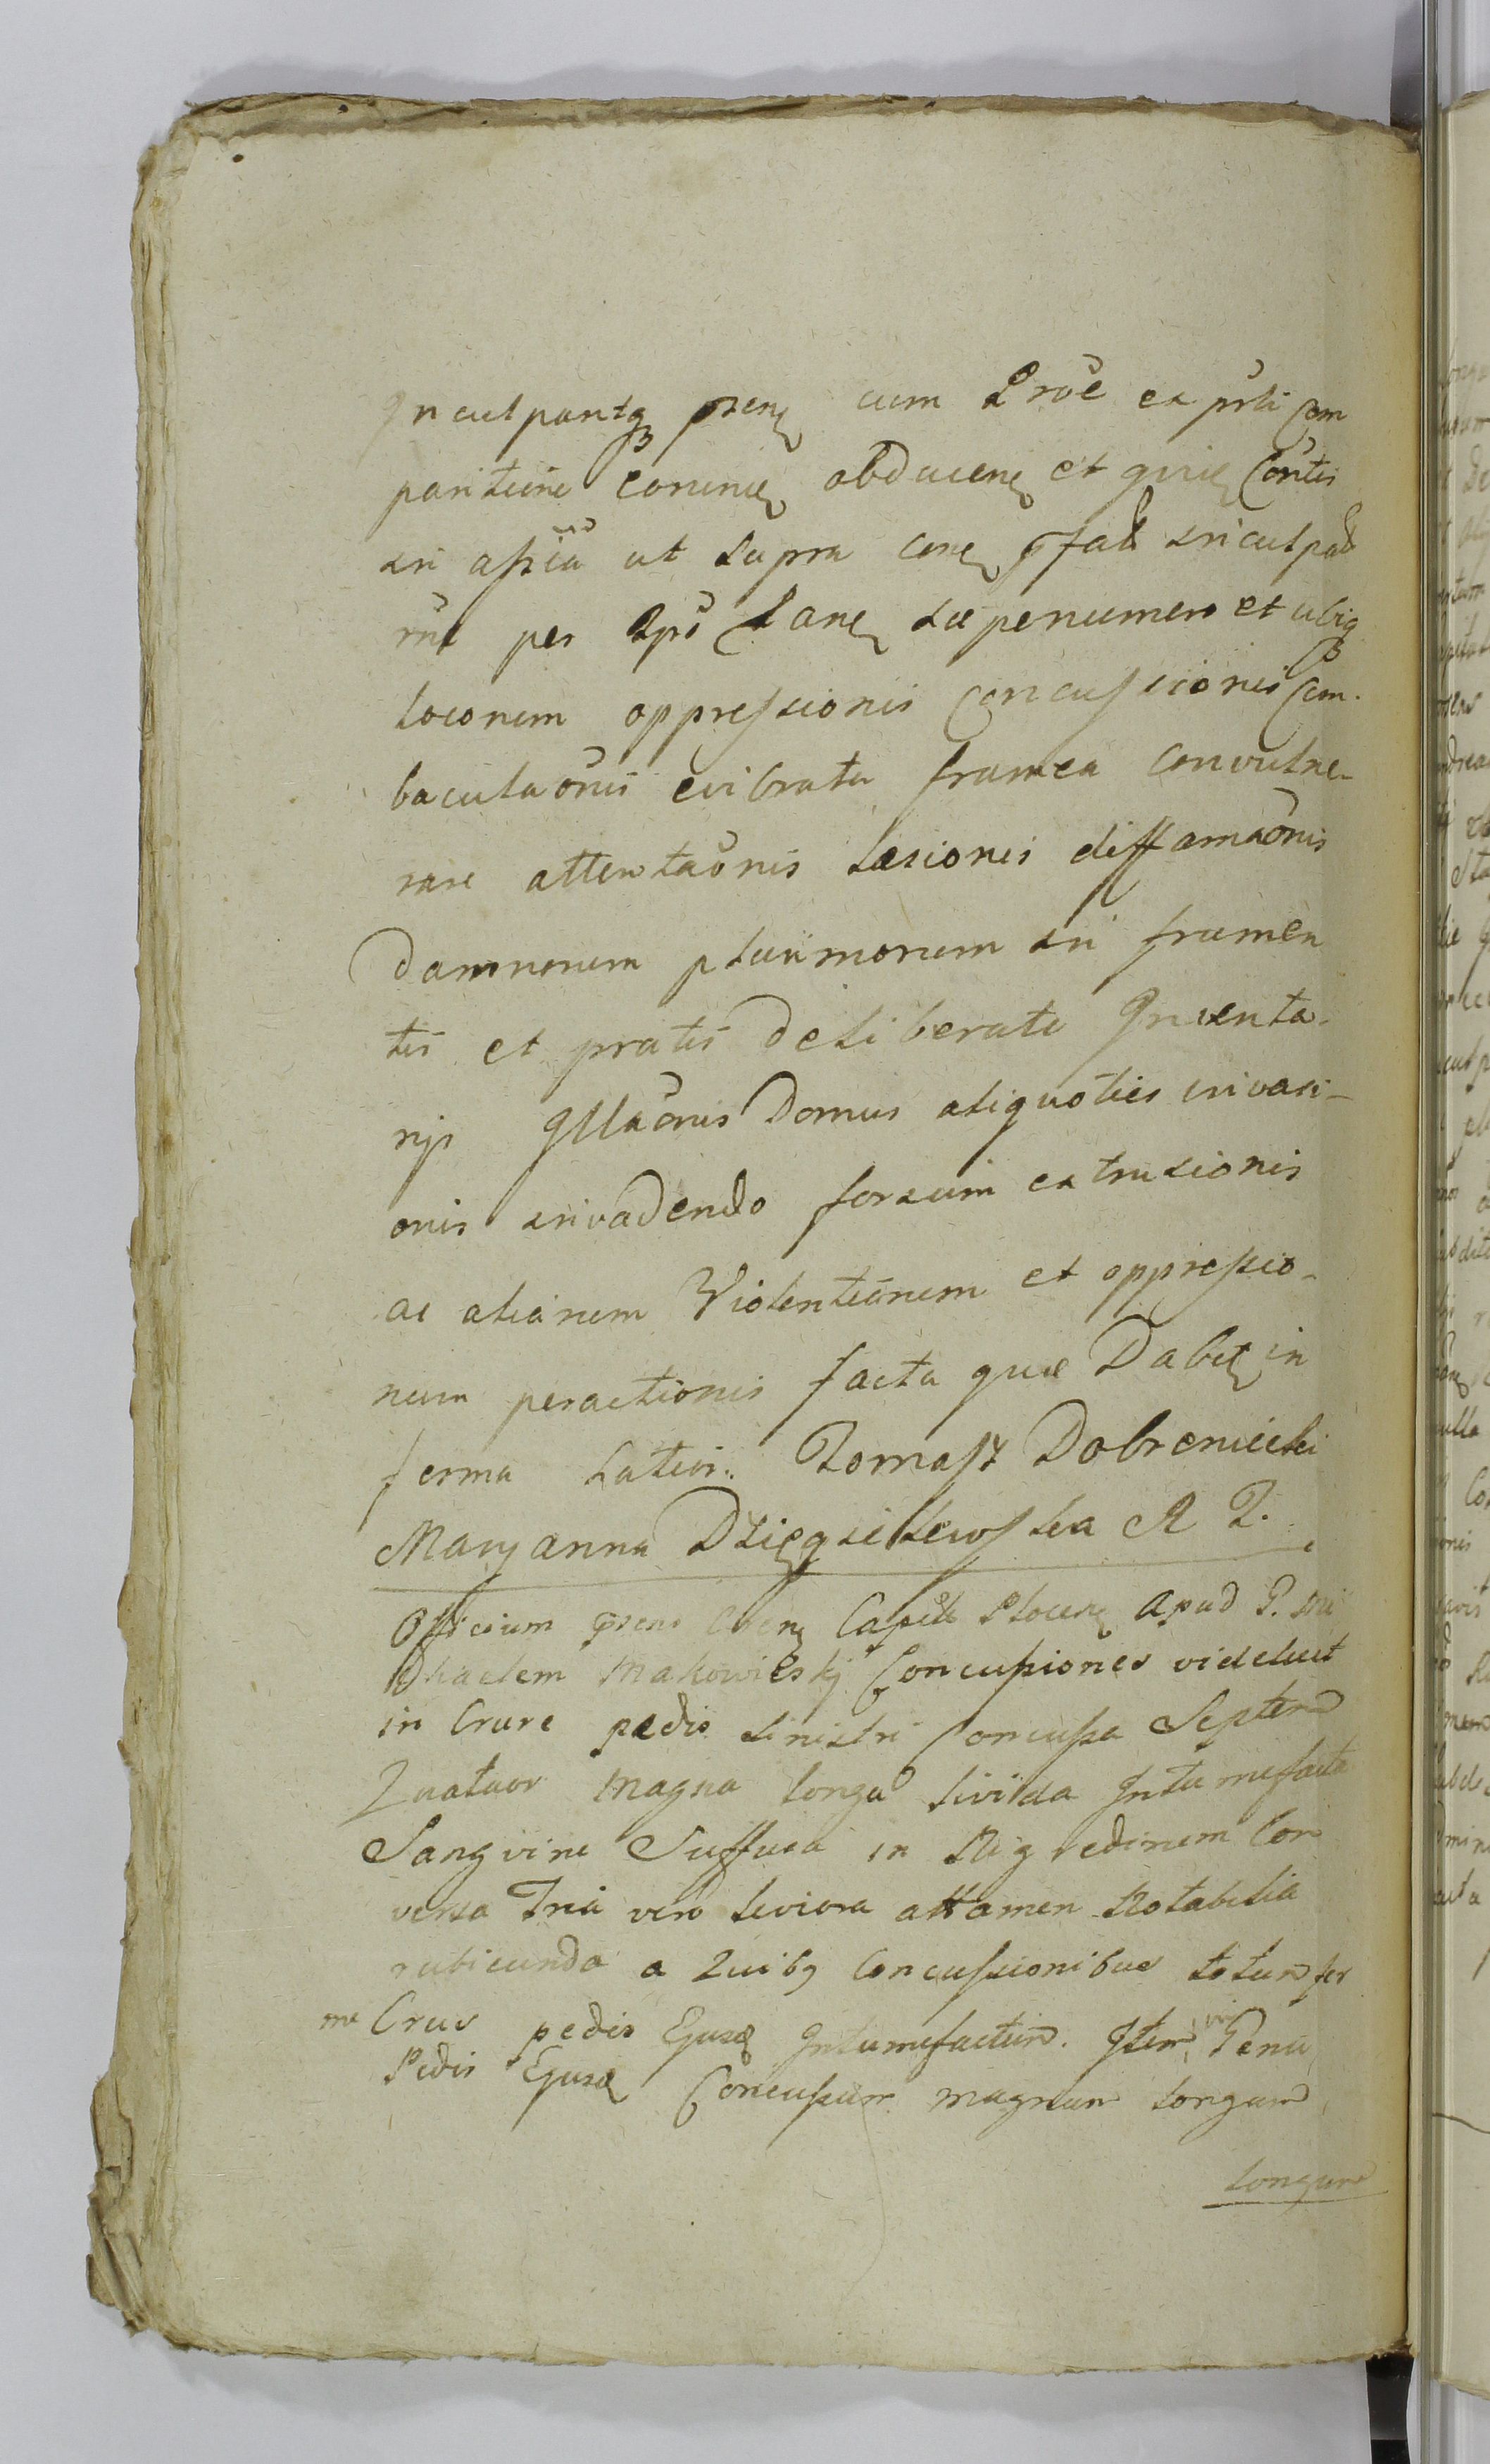 Inculpantq; praeng cum Proe ex prti Com
paritione Eorumq abduceng et qviq Contis
sri assia ut supra Cong pfad inculpad
rnt per Ipo sang saepenumero et ubiq
locorum oppressionis Concussionis Com-
baculaonis evibrata framea Convulne-
rare attentaonis laesionis diffamaonis
Damnorum plurimorum in frumen
tis et pratis Deliberate Inventa-
rys Illaonis Domus aliquoties invasi-
onis invadendo forsum extrusionis
ac aliarum Violentiarum et oppressio-
num peractionis facta quae Dabit in
forma latior. Tomasz Dobrenicki
Maryanna Dzięgielewska A T.
Officium praens Capit Plocen Apud G. Mi
chaelem Makowiesky Concussiones videlicet
in Crure pedis sinistri Concussa Septem
Quatuor magna longa livida Intumefacta
Sangvine Suffusa in Nigredinem Con
versa Tria vero leviora attamen Notabilia
rubicunda a Quibq Concussionibus totum fer
me Crus pedis Ejusq Intumefactum. Item Genu
Pedis Ejusq Concussum magnum longum
longum